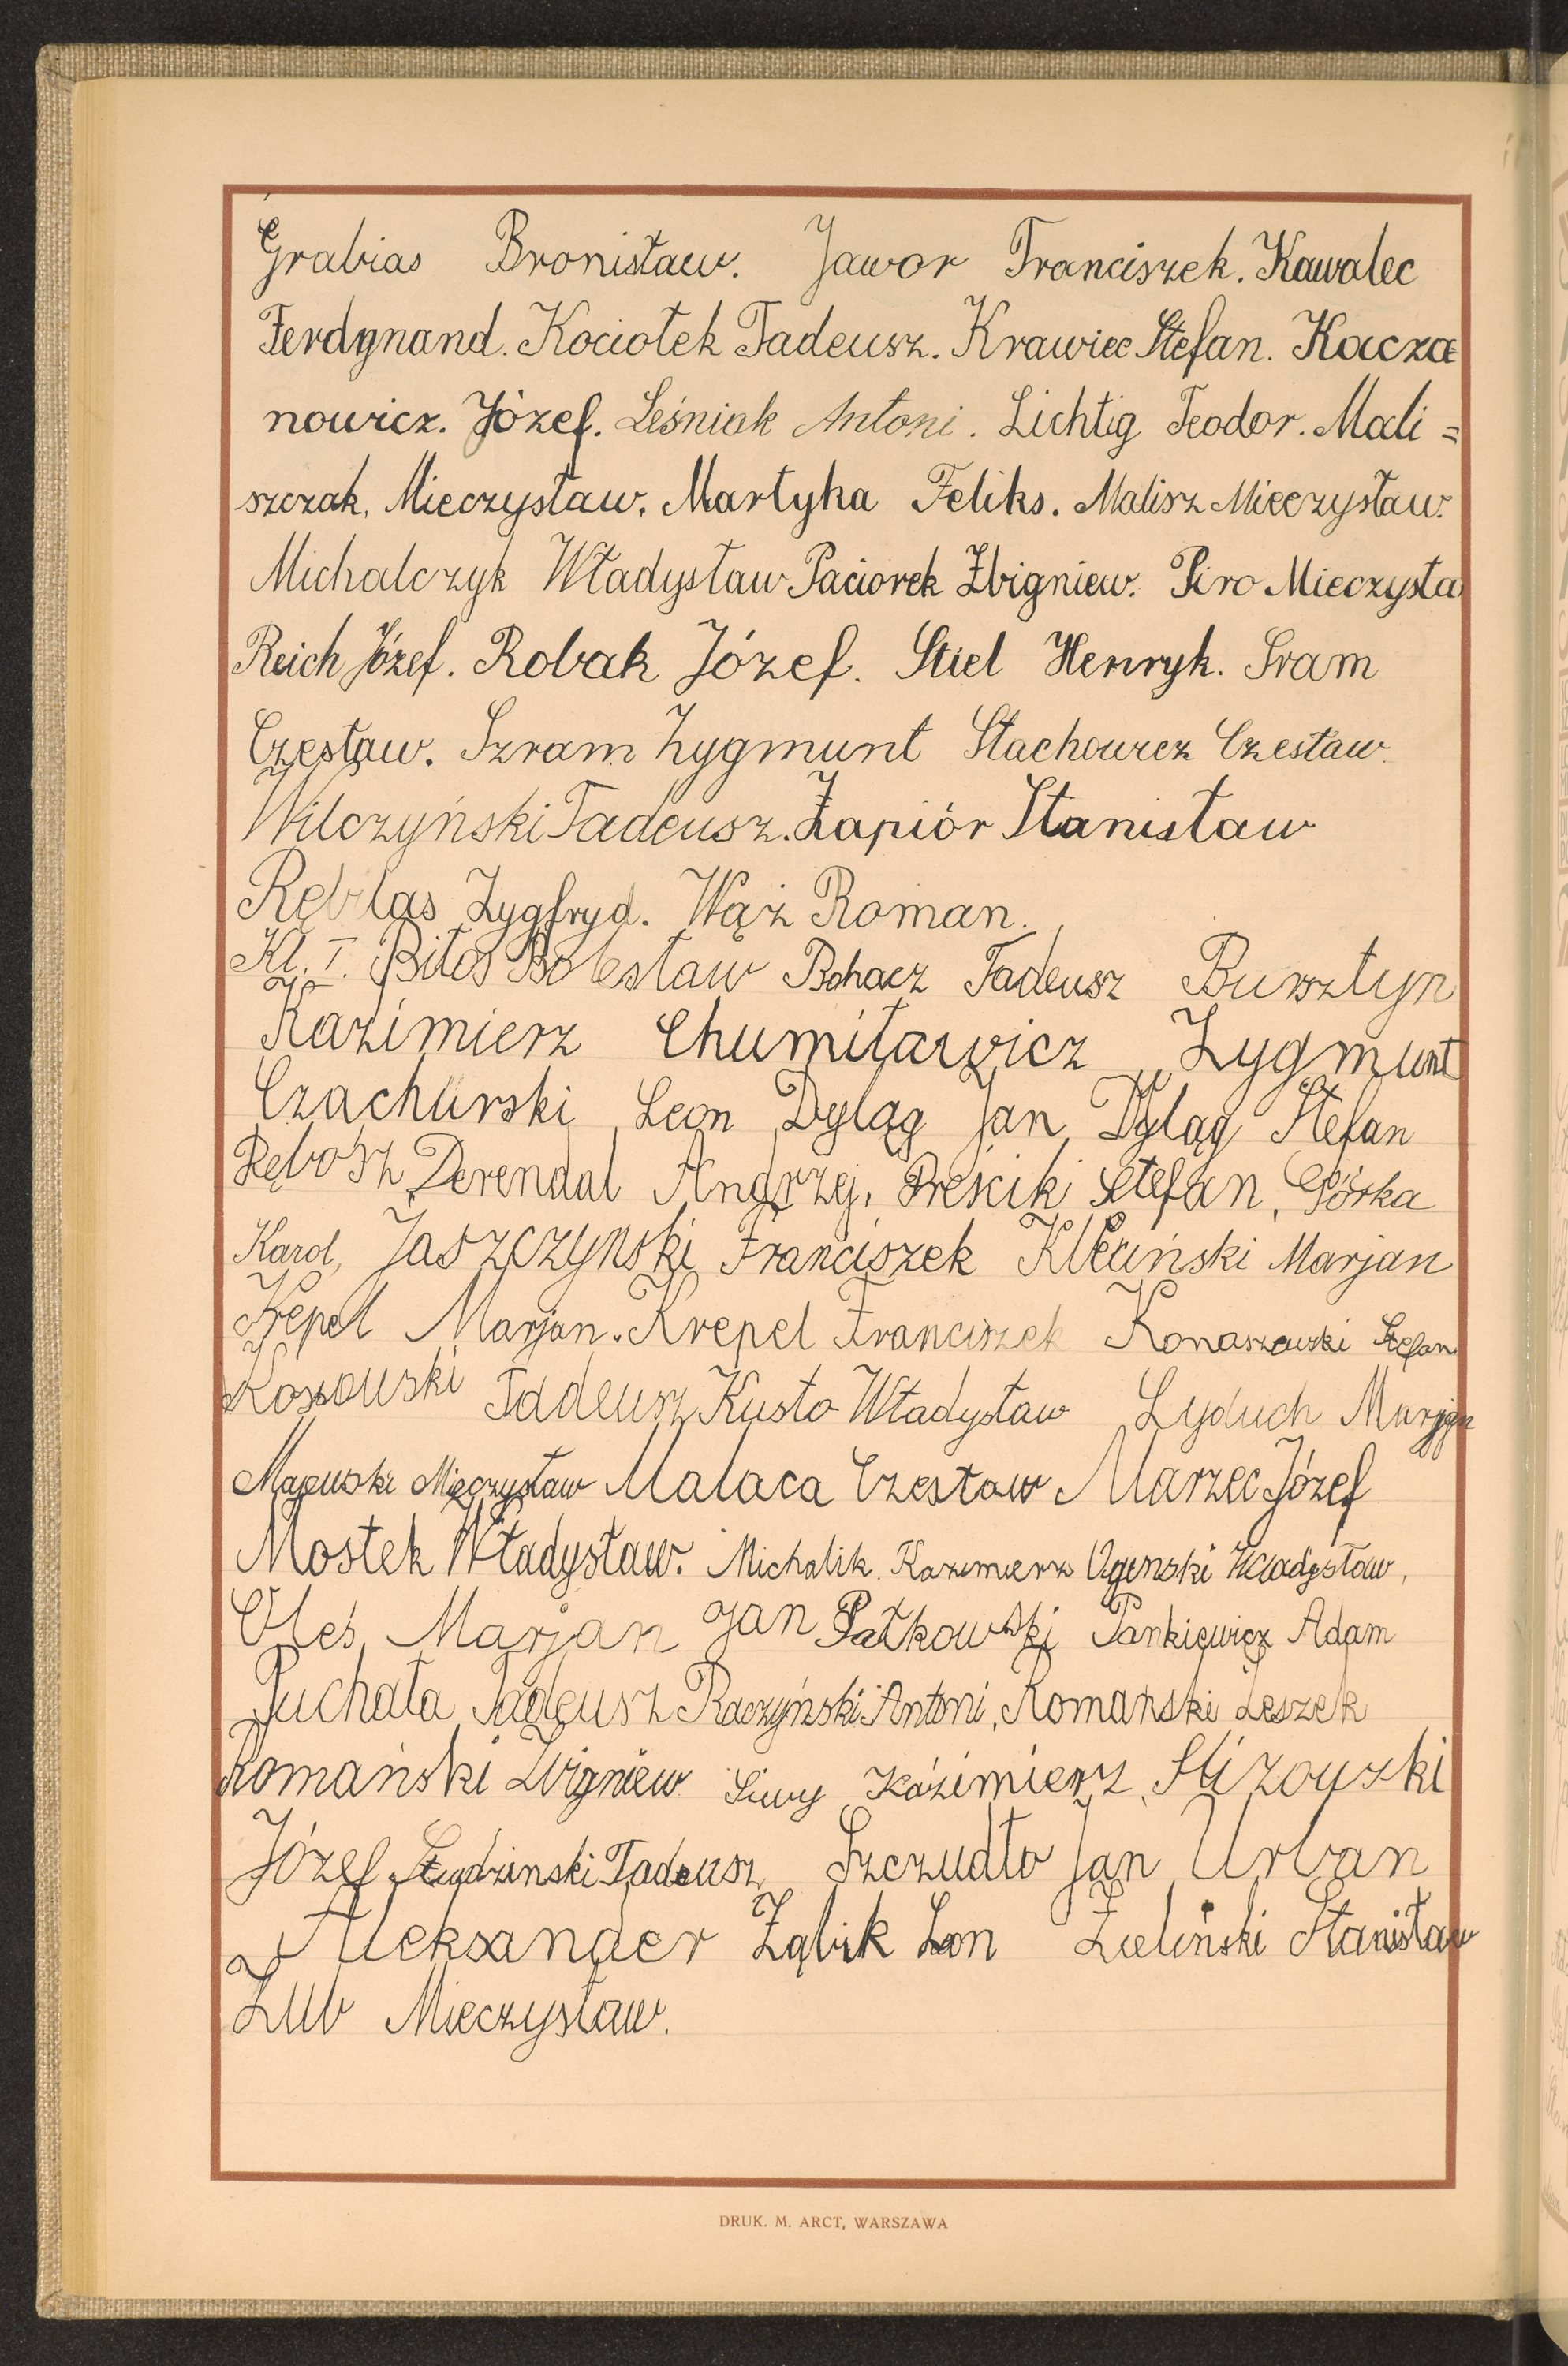 Grabias Bronisław. Jawor Franciszek. Kawalec
Ferdynand. Kociołek Tadeusz. Krawiec Stefan. Kacza=
nowicz. Józef. Leśniak Antoni. Lichtig Teodor. Mali=
szczak. Mieczysław. Martyka Feliks. Malisz Mieczysław.
Michalczyk Władysław Paciorek Zbigniew. Piro Mieczysła
Reich Józef. Robak Józef. Stiel Henryk. Sram
Czesław. Szram Zygmunt Stachowicz Czesław.
Wilczyński Tadeusz. Zapiór Stanisław
Rębilas Zygfryd. Wąż Roman.
Kl. I. Bitos Bolesław Bohacz Tadeusz Bursztyn
Kazimierz Chumiławicz Zygmunt
Czachurski Leon Dyląg Jan, Dyląg Stefan
Rębosz, Derendal Andrzej, Preścik Stefan, Górka
Karol, Jaszczyński Franciszek Kleciński Marjan
Krepel Marjan. Krepel Franciszek Konaszewski Stefan
Kossowski Tadeusz Kusto Władysław Lyduch Marjan
Majewski Mieczysław Malaca Czesław Marzec Józef
Mostek Władysław. Michalik Kazimierz Ogenski Władysław,
Oleś, Marjan Jan Patkowski Pankiewicz Adam
Puchała Tadeusz Raczyński Antoni, Romański Leszek
Romański Zbigniew Siwy Kazimierz, Slizowski
Józef Studzinski Tadeusz Szczudło Jan Urban
Aleksander Ząbik Leon Zieliński Stanisław
Zub Mieczysław.
DRUK. M. ARCT, WARSZAWA